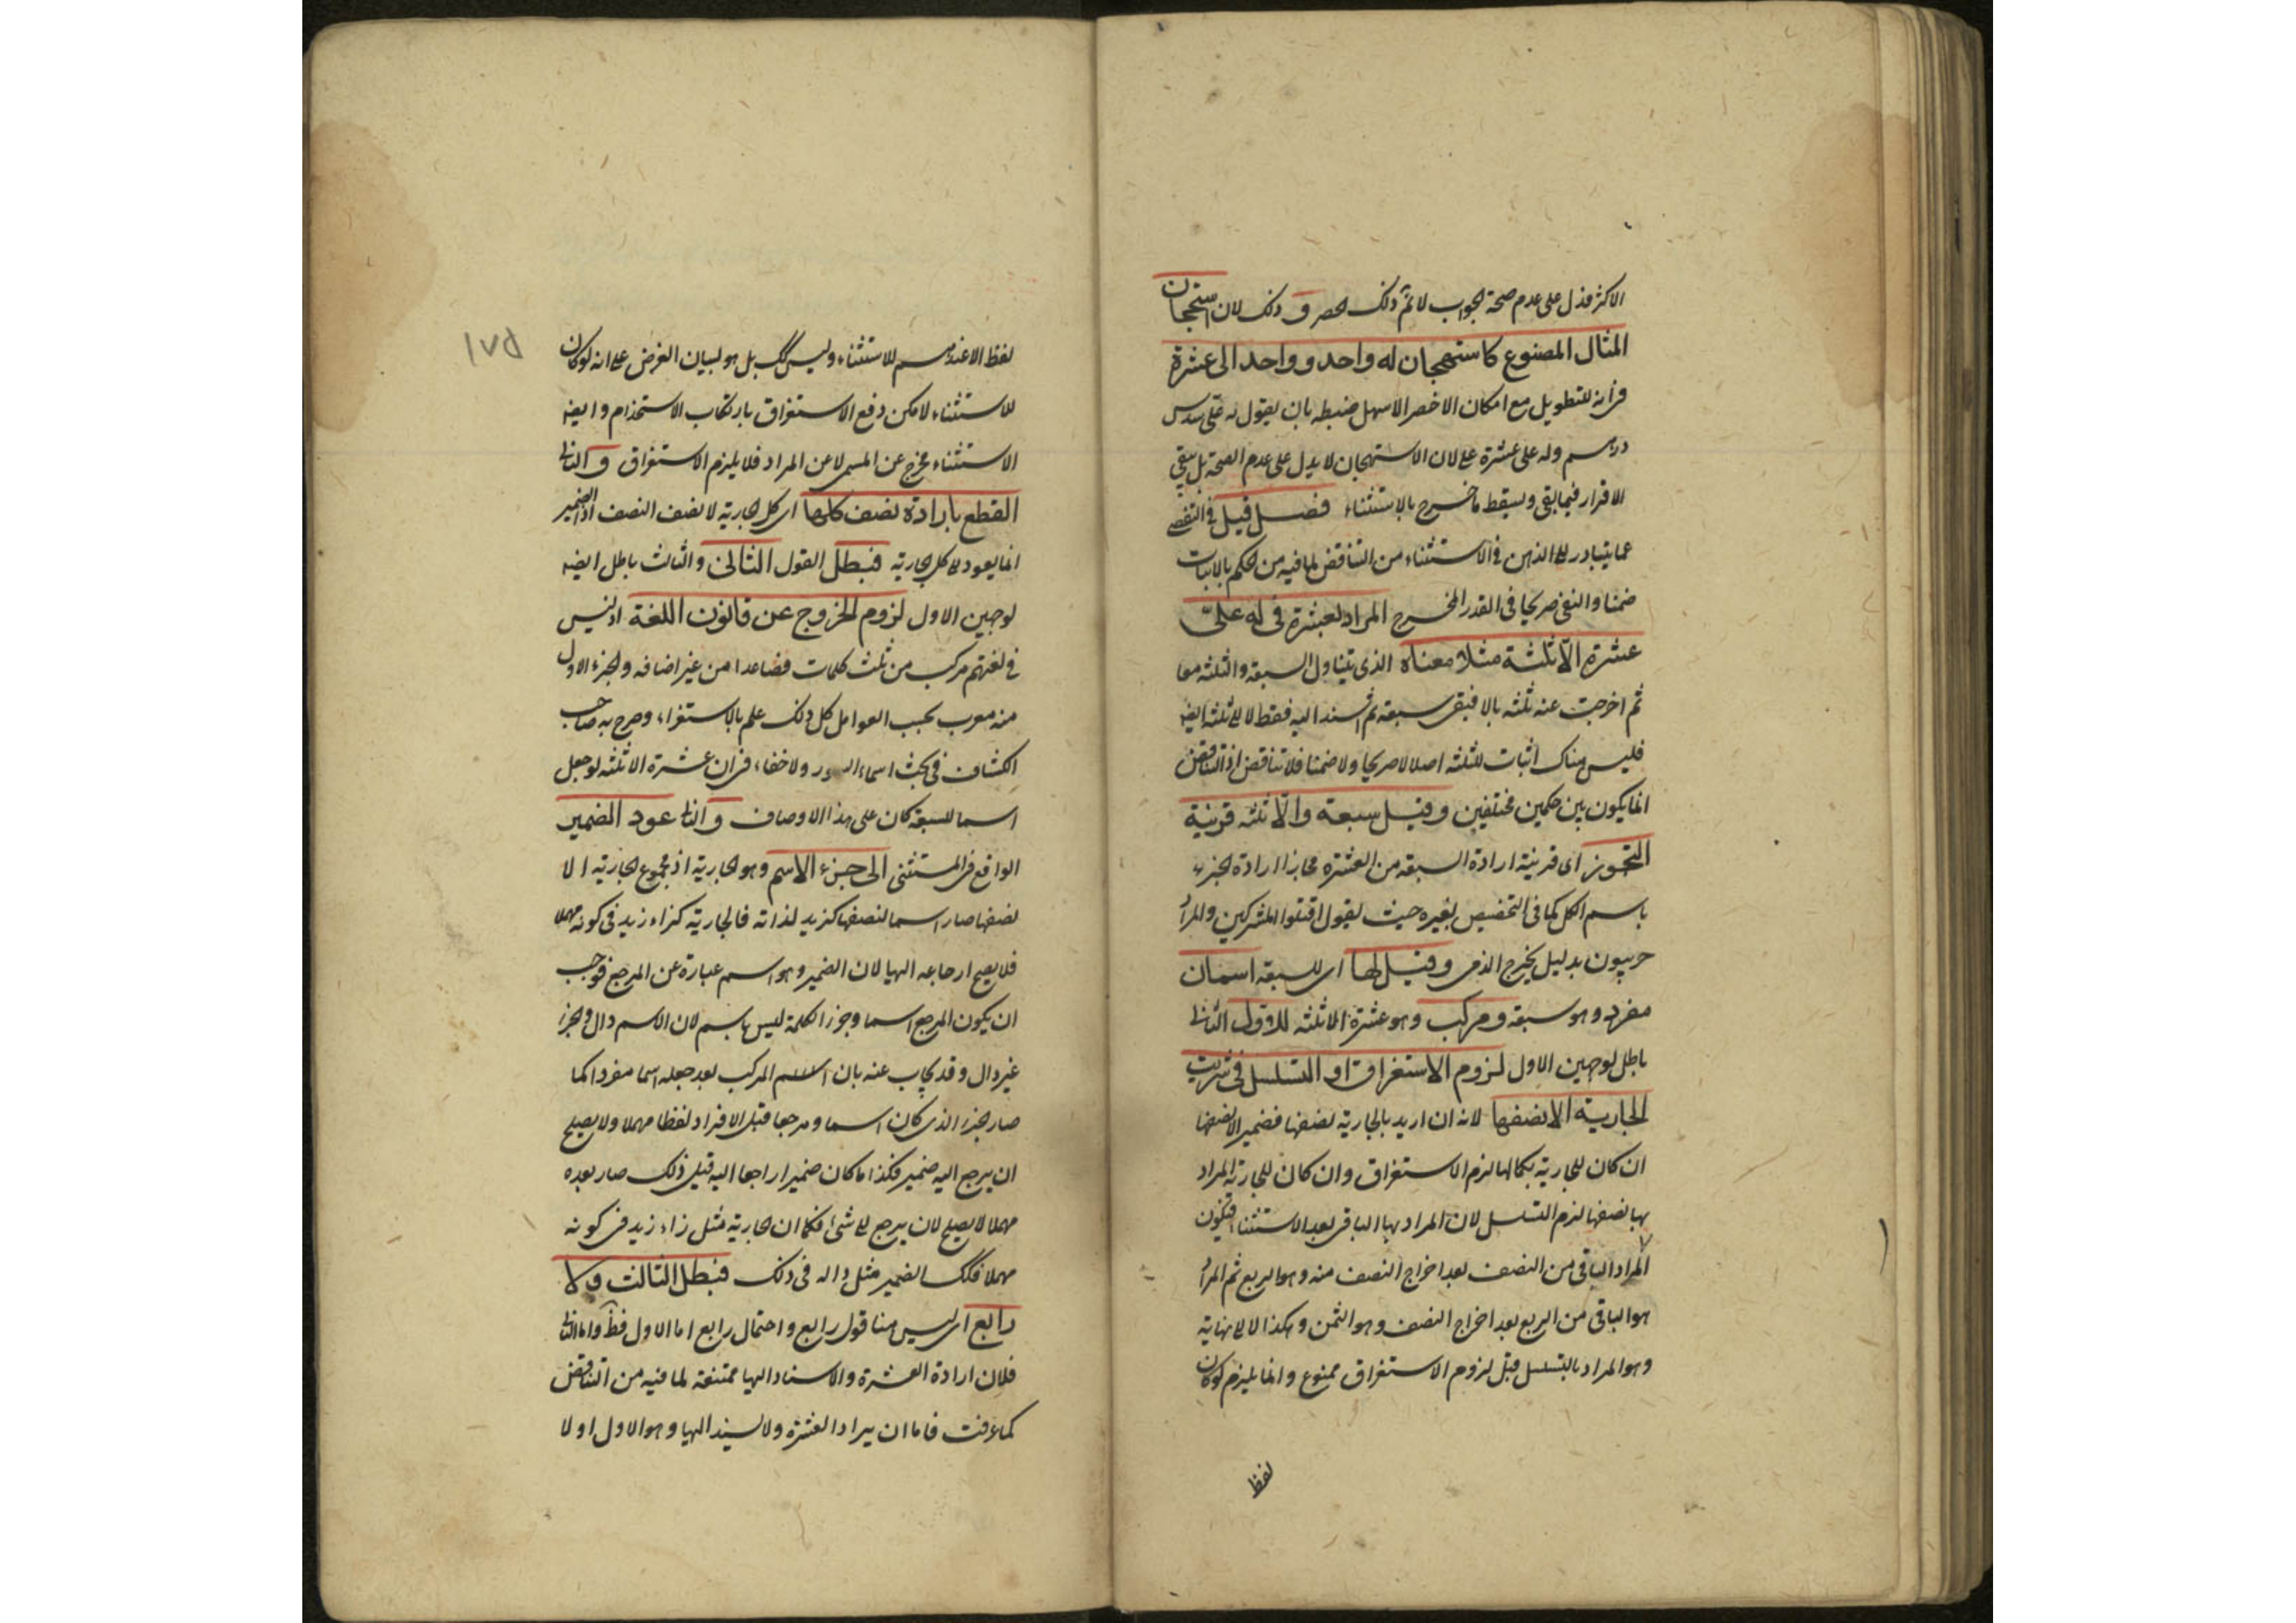 الاكثر فدل على عدم صحة الجواب لا ثم ذلك الحصر و ذلك لان استهجان
المثال المصنوع كاستهجان له واحد وواحد الى عشرة
فى انه للتطويل مع امكان الاخصر الاسهل ضبطه بان يقول له على سدس
درهم وله على عشرة على لان الاستهجان لا يدل على عدم الصحة بل يبقى
الاقرار فيما بقى ويسقط ما خرج بالاستثناء فصل قيل فى التفصى
عما يتبادر الى الذهن فى الاستثناء من التناقض لما فيه من الحكم بالاثبات
ضمنا والنفى صريحا فى القدر المخرج المراد بعشرة فى له علىّ
عشرة الّا ثلثة مثلا معناه الذى يتناول السبعة والثلثة معا
ثم اخرجت عنه ثلثة بالا فبقى سبعة ثم اسند اليه فقط لا الى ثلثة ايضه
فليس هناك اثبات للثلثة اصلا لا صريحا ولا ضمنا فلا تناقض اذ التناقض
انما يكون بين حكمين مختلفين وقيل سبعة والّا ثلثه قرينة
التجوز اى قرينة ارادة السبعة من العشرة مجازا ارادة الجزء
باسم الكل كما فى التخصيص بغيره حيث يقول اقتلوا المشركين والمراد
حربيون بدليل يخرج الذمى وقيل لها اى للسبعة اسمان
مفرد وهو سبعة ومركب وهو عشرة الا ثلثه للاول الثانى
باطل لوجهين الاول لزوم الاستغراق او التسلسل فى شريت
الجارية الا نصفها لانه ان اريد بالجارية نصفها فضمير الا نصفها
ان كان للجارية بكمالها لزم الاستغراق وان كان للجارية المراد
بها نصفها لزم التسلسل لان المراد بها الباقى بعد الاستثناء فيكون
المراد الباقى من النصف بعد اخراج النصف منه وهو الربع ثم المراد
هو الباقى من الربع بعد اخراج النصف وهو الثمن وهكذا لا الى نهاية
وهو المراد بالتسلسل قيل لزوم الاستغراق ممنوع وانما يلزم لو كان
لفظ
١٧٥
لفظ الا عندهم للاستثناء وليس كك بل هو لبيان الغرض على انه لو كان
للاستثناء لامكن دفع الاستغراق بارتكاب الاستخدام وايضه
الاستثناء مخرج عن المسمى لا عن المراد فلا يلزم الاستغراق و الثانى
القطع بارادة نصف كلها اى كل الجارية لا نصف النصف اذ الضمير
انما يعود الى كل الجارية فبطل القول الثانى والثالث باطل ايضه
لوجهين الاول لزوم الخروج عن قانون اللغة اذ ليس
فى لغتهم مركب من ثلث كلمات فصاعدا من غير اضافه والجزء الاول
منه معرب بحسب العوامل كل ذلك علم بالاستقراء وصرح به صاحب
الكشاف فى بحث اسماء السور ولا خفاء فى ان عشرة الا ثلثه لو جعل
اسما للسبعة كان على هذا الاوصاف و الثانى عود الضمير
الواقع فى المستثنى الى جزء الاسم وهو الجارية اذ مجموع الجارية الا
نصفها صار اسما لنصفها كزيد لذاته فالجارية كزاء زيد فى كونه مهملا
فلا يصح ارجاعه اليها لان الضمير وهو اسم عبارة عن المرجع فوجب
ان يكون المرجع اسما وجزء الكلمة ليس باسم لان الاسم دال والجزء
غير دال وقد يجاب عنه بان الاسم المركب بعد جعله اسما مفردا كما
صار الجزء الذى كان اسما ومرجعا قبل الافراد لفظا مهملا ولا يصلح
ان يرجع اليه ضمير فكذا ما كان ضميرا راجعا اليه قبل ذلك صار بعده
مهملا لا يصلح لان يرجع الى شئ فكما ان الجارية مثل زاء زيد فى كونه
مهملا فكك الضمير مثل داله فى ذلك فبطل الثالث ولا
رابع اى ليس هنا قول رابع واحتمال رابع اما الاول فظ واما الثانى
فلان ارادة العشرة والاسناد اليها ممتنعة لما فيه من التناقض
كما عرفت فاما ان يراد العشرة ولا يسند اليها وهو الاول او لا